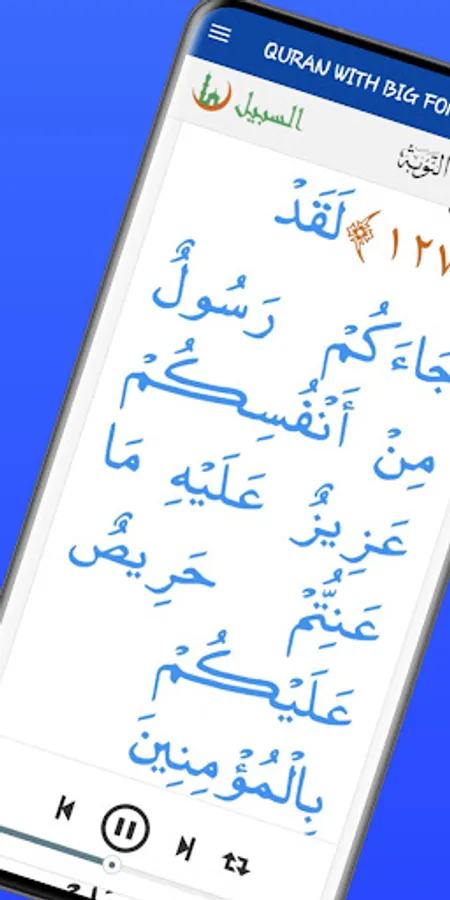 QURAN WITH BIG FO
السبيل
التوبة
١٢٧﴾ لَقَدْ
جَاءَكُمْ رَسُولٌ
مِنْ أَنْفُسِكُمْ
عَزِيزٌ عَلَيْهِ مَا
عَنِتُّمْ حَرِيصٌ
عَلَيْكُمْ
بِالْمُؤْمِنِينَ